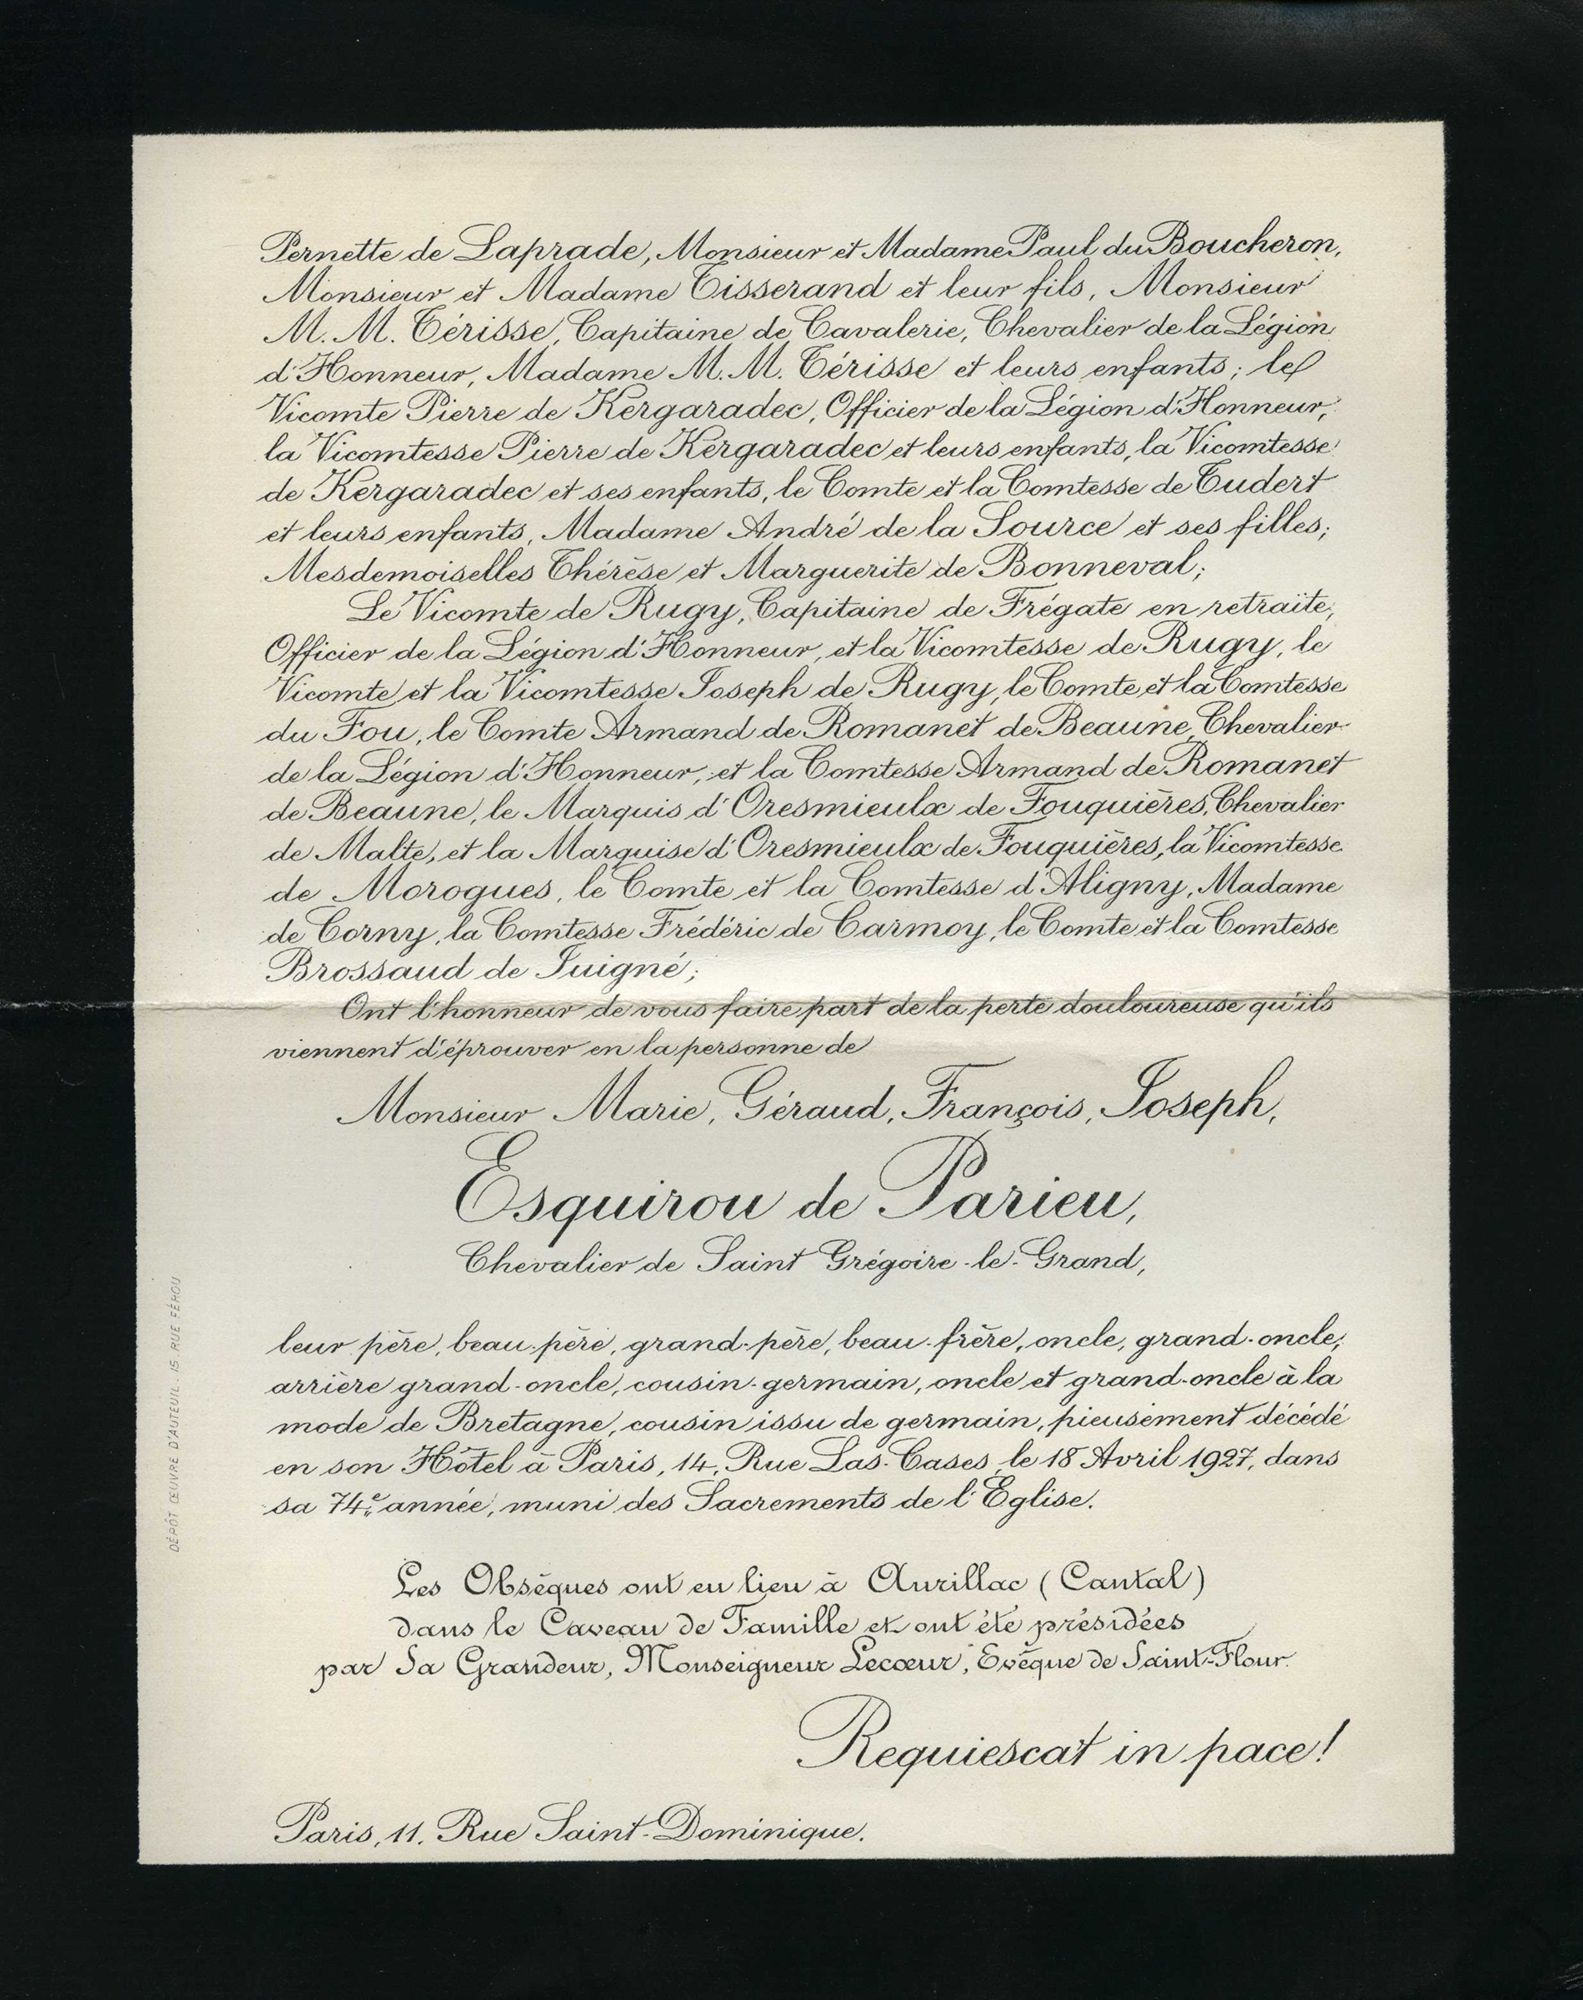 Pernette de Laprade, Monsieur et Madame Paul du Boucheron,
Monsieur et Madame Tisserand et leur fils, Monsieur
M. M. Térisse, Capitaine de Cavalerie, Chevalier de la Légion
d'Honneur, Madame M. M. Térisse et leurs enfants; le
Vicomte Pierre de Kergaradec, Officier de la Légion d'Honneur,
la Vicomtesse Pierre de Kergaradec et leurs enfants, la Vicomtesse
de Kergaradec et ses enfants, le Comte et la Comtesse de Tudert
et leurs enfants, Madame André de la Source et ses filles;
Mesdemoiselles Thérèse et Marguerite de Bonneval;
Le Vicomte de Rugy, Capitaine de Frégate en retraite,
Officier de la Légion d'Honneur, et la Vicomtesse de Rugy, le
Vicomte et la Vicomtesse Joseph de Rugy, le Comte et la Comtesse
du Fou, le Comte Armand de Romanet de Beaune, Chevalier
de la Légion d'Honneur, et la Comtesse Armand de Romanet
de Beaune, le Marquis d'Oresmieulx de Fouquières, Chevalier
de Malte, et la Marquise d'Oresmieulx de Fouquières, la Vicomtesse
de Morogues, le Comte et la Comtesse d'Aligny, Madame
de Corny, la Comtesse Frédéric de Carmoy, le Comte et la Comtesse
Brossaud de Juigné;
Ont l'honneur de vous faire part de la perte douloureuse qu'ils
viennent d'éprouver en la personne de
Monsieur Marie, Géraud, François, Joseph,
Esquirou de Parieu,
Chevalier de Saint Grégoire-le-Grand,
leur père, beau-père, grand-père, beau-frère, oncle, grand-oncle,
arrière grand-oncle, cousin-germain, oncle et grand-oncle à la
mode de Bretagne, cousin issu de germain, pieusement décédé
en son Hôtel à Paris, 14, Rue Las-Cases, le 18 Avril 1927, dans
sa 74e année, muni des Sacrements de l'Eglise.
Les Obsèques ont eu lieu à Aurillac (Cantal)
dans le Caveau de Famille et ont été présidées
par Sa Grandeur, Monseigneur Lecœur, Evêque de Saint-Flour.
Requiescat in pace!
Paris, 11, Rue Saint-Dominique.
DÉPÔT ŒUVRE D'AUTEUIL. 15 RUE FÉROU